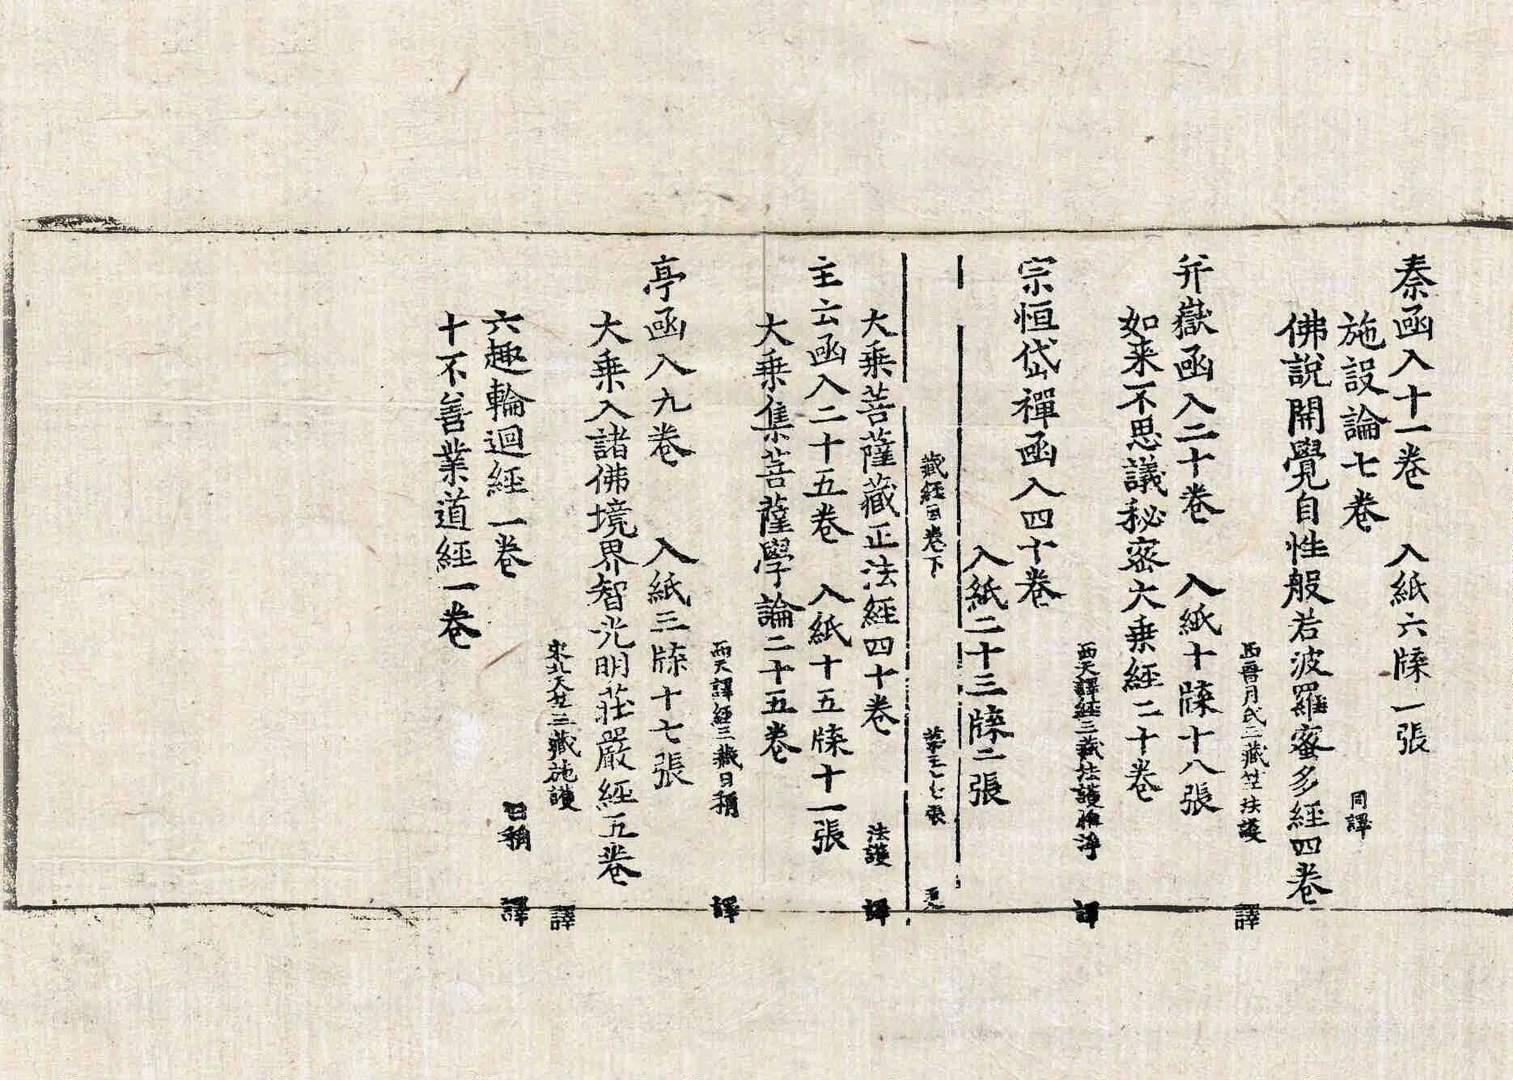 秦函入十一卷　入紙六牒一張
施設論七卷　同譯
佛說開覺自性般若波羅蜜多經四卷
西晉月氏三藏竺法護　譯
并嶽函入二十卷　入紙十牒十八張
如来不思議秘密大乗經二十卷
西天譯經三藏法護惟淨　譯
宗恒岱禪函入四十卷
入紙二十三牒二張
藏經目卷下
大乗菩薩藏正法經四十卷　法護　譯
主云函入二十五卷　入紙十五牒十一張
大乗集菩薩學論二十五卷
西天譯經三藏日稱　譯
亭函入九卷　入紙三牒十七張
大乗入諸佛境界智光明莊嚴經五卷
宋北天竺三藏施護　譯
六趣輪迴經一卷　日稱　譯
十不善業道經一卷